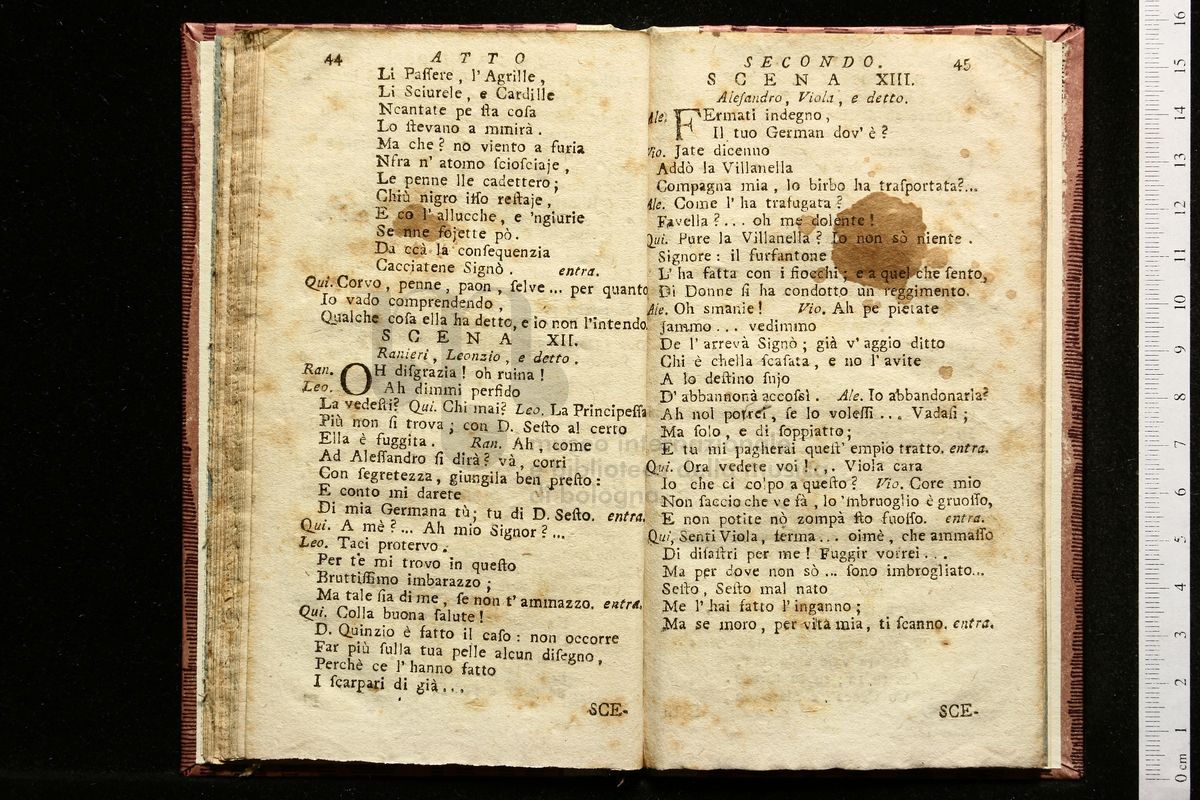 44 ATTO
Li Paſſere, l'Agrille,
Li Sciurele, e Cardille
Ncantate pe ſta coſa
Lo ſtevano a mmirà.
Ma che? no viento a furia
Nfra n'atomo ſcioſciaje,
Le penne lle cadettero;
Chiù nigro iſſo reſtaje,
E co l'allucche, e 'ngiurie
Se nne fojette pò.
Da ccà la conſequenzia
Cacciatene Signò. entra.
Qui. Corvo, penne, paon, ſelve... per quanto
Io vado comprendendo,
Qualche coſa ella ha detto, e io non l'intendo.
SCENA XII.
Ranieri, Leonzio, e detto.
Ran. OH diſgrazia! oh ruina!
Leo. Ah dimmi perfido
La vedeſti? Qui. Chi mai? Leo. La Principeſſa
Più non ſi trova; con D. Seſto al certo
Ella è fuggita. Ran. Ah, come
Ad Aleſſandro ſi dirà? và, corri
Con ſegretezza, giungila ben preſto:
E conto mi darete
Di mia Germana tù; tu di D. Seſto. entra.
Qui. A mè?... Ah mio Signor?...
Leo. Taci protervo.
Per te mi trovo in queſto
Bruttiſſimo imbarazzo;
Ma tale ſia di me, ſe non t'ammazzo. entra.
Qui. Colla buona ſalute!
D. Quinzio è fatto il caſo: non occorre
Far più ſulla tua pelle alcun diſegno,
Perchè ce l'hanno fatto
I ſcarpari di già...
SCE-
SECONDO. 45
SCENA XIII.
Aleſandro, Viola, e detto.
Ale. FErmati indegno,
Il tuo German dov'è?
Vio. Jate dicenno
Addò la Villanella
Compagna mia, lo birbo ha traſportata?...
Ale. Come l'ha trafugata?
Favella?... oh me dolente!
Qui. Pure la Villanella? Io non sò niente.
Signore: il furfantone
L'ha fatta con i fiocchi; e a quel che ſento,
Di Donne ſi ha condotto un reggimento.
Ale. Oh smanie! Vio. Ah pe pietate
Jammo... vedimmo
De l'arrevà Signò; già v'aggio ditto
Chi è chella ſcaſata, e no l'avite
A lo deſtino ſujo
D'abbannonà accoſsì. Ale. Io abbandonarla?
Ah nol potrei, ſe lo voleſſi... Vadaſi;
Ma ſolo, e di ſoppiatto;
E tu mi pagherai queſt'empio tratto. entra.
Qui. Ora vedete voi!... Viola cara
Io che ci colpo a queſto? Vio. Core mio
Non ſaccio che ve fà, lo 'mbruoglio è gruoſſo,
E non potite nò zompà ſto fuoſſo. entra.
Qui, Senti Viola, ferma... oimè, che ammaſſo
Di diſaſtri per me! Fuggir vorrei...
Ma per dove non sò... ſono imbrogliato...
Seſto, Seſto mal nato
Me l'hai fatto l'inganno;
Ma se moro, per vita mia, ti ſcanno. entra.
SCE-
museo internazionale
e biblioteca della musica
di bologna
0 cm 1 2 3 4 5 6 7 8 9 10 11 12 13 14 15 16